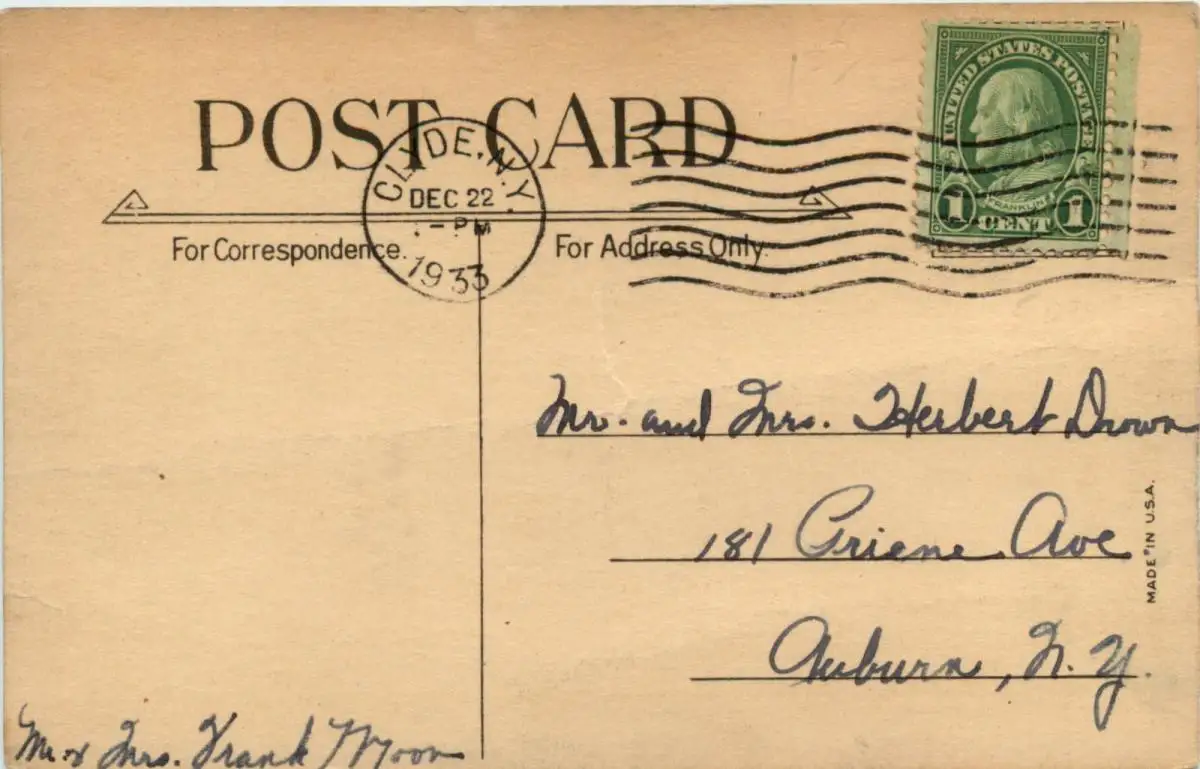 POST CARD
CLYDE, N.Y.
DEC 22
-PM
1933
UNITED STATES POSTAGE
FRANKLIN
1 CENT 1
For Correspondence.
For Address Only.
Mr. and Mrs. Herbert Drown
181 Ave
Auburn, N. Y.
MADE IN U.S.A.
Mr & Mrs. Frank Moon